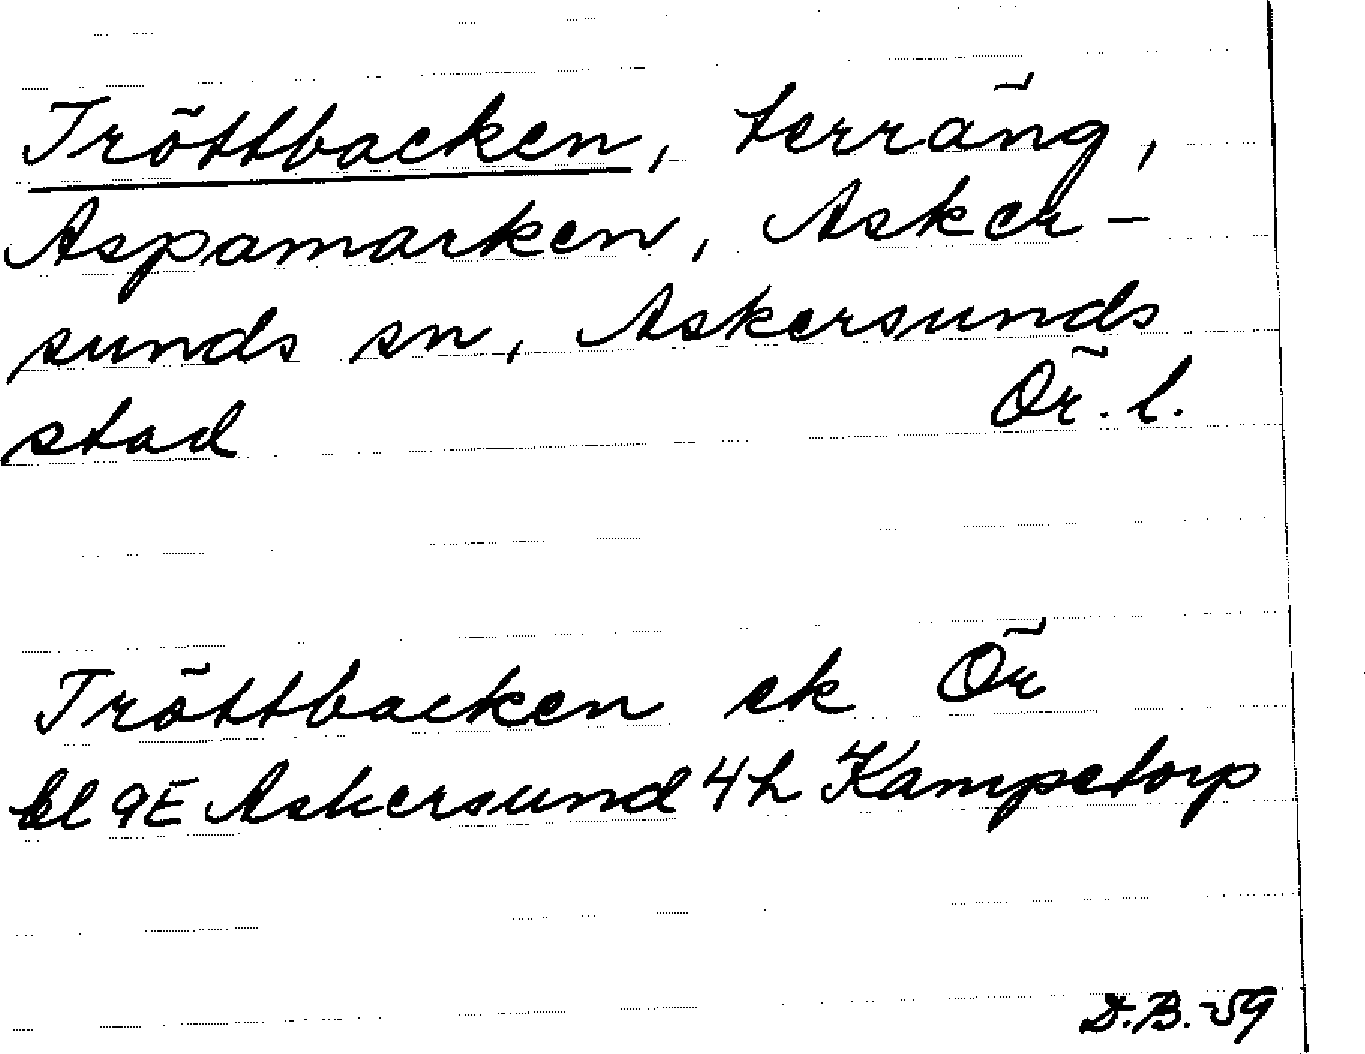 Tröttbacken, terräng,
Aspamarken, Asker-
sunds sn, Askersunds
stad Ör. l.
Tröttbacken ek Ör
bl 9E Askersund 4h Kampetorp
D.B.-59